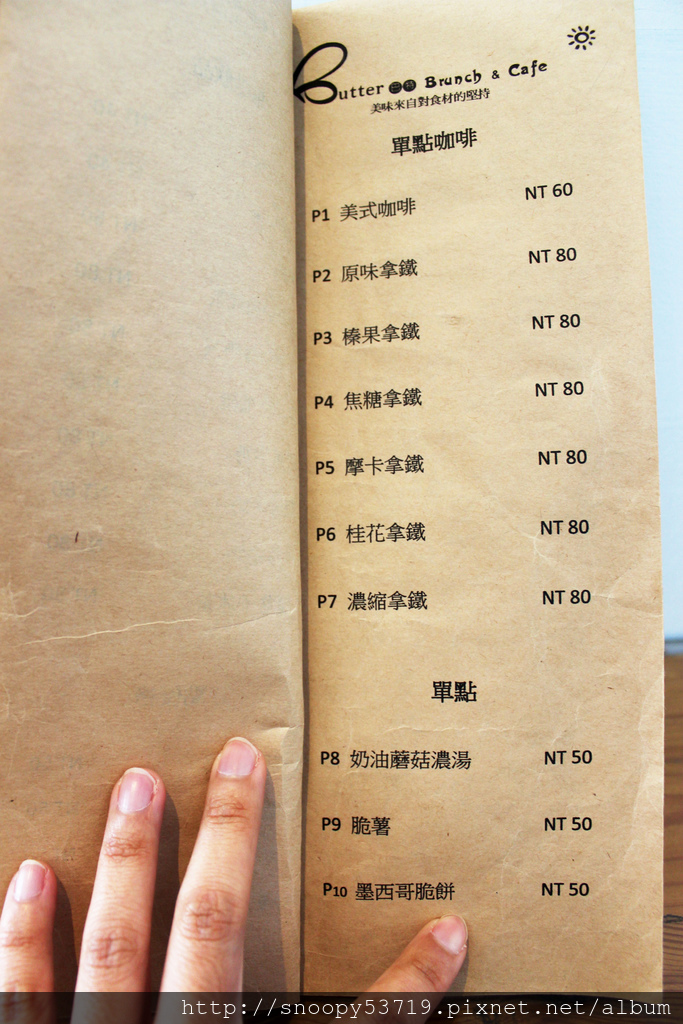 Butter 巴特 Brunch & Cafe
美味來自對食材的堅持
單點咖啡
P1 美式咖啡 NT 60
P2 原味拿鐵 NT 80
P3 榛果拿鐵 NT 80
P4 焦糖拿鐵 NT 80
P5 摩卡拿鐵 NT 80
P6 桂花拿鐵 NT 80
P7 濃縮拿鐵 NT 80
單點
P8 奶油蘑菇濃湯 NT 50
P9 脆薯 NT 50
P10 墨西哥脆餅 NT 50
http://snoopy53719.pixnet.net/album